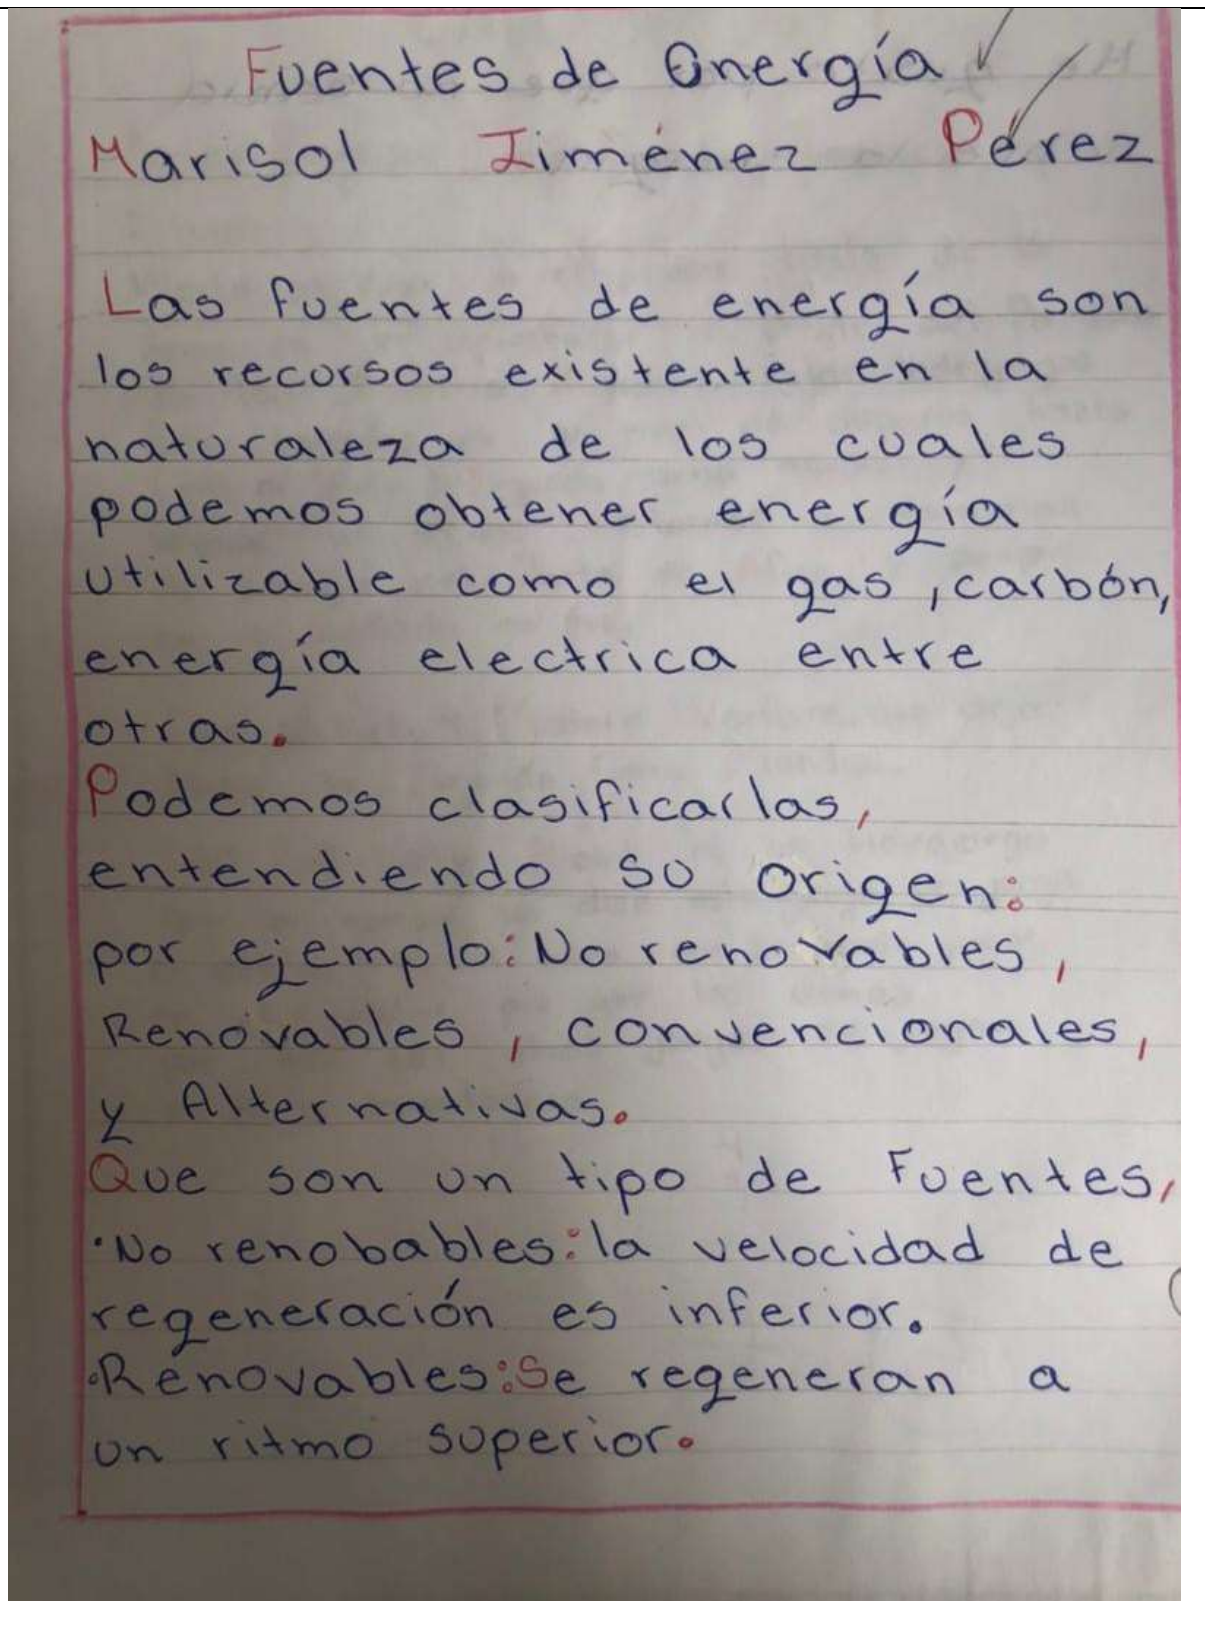 Fuentes de Energía
Marisol Jiménez Pérez
Las fuentes de energía son
los recursos existente en la
naturaleza de los cuales
podemos obtener energía
utilizable como el gas, carbón,
energía electrica entre
otras.
Podemos clasificarlas,
entendiendo su origen:
por ejemplo: No renovables,
Renovables, convencionales,
y Alternativas.
Que son un tipo de Fuentes,
·No renobables: la velocidad de
regeneración es inferior.
·Renovables: Se regeneran a
un ritmo superior.